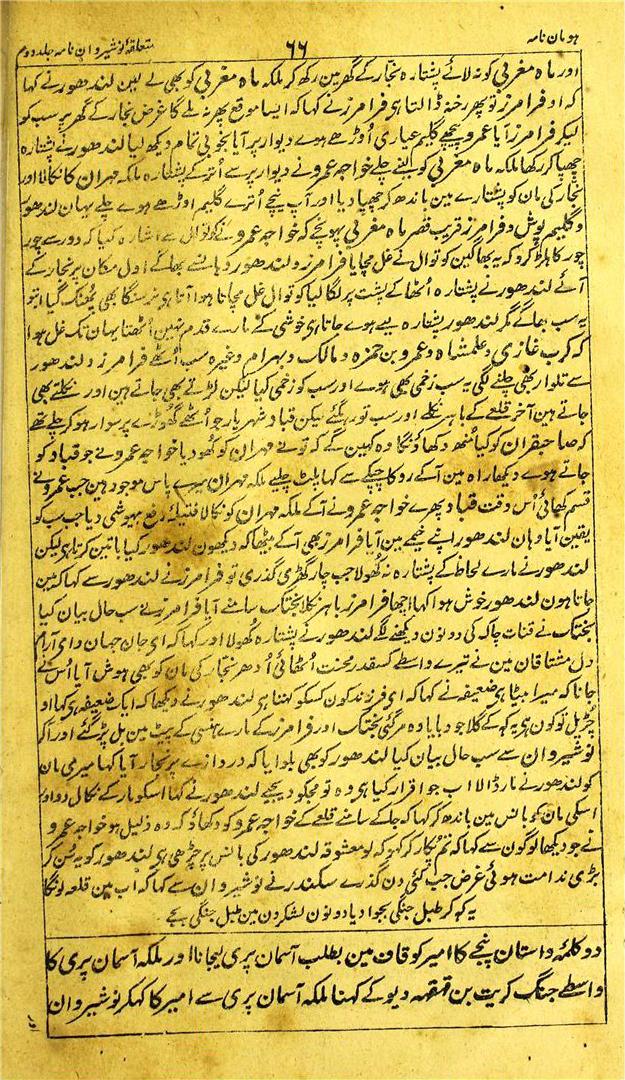 ہومان نامہ
۶۶
متعلقۂ نوشیروان نامہ جلد دوم
اور ماہ مغربی کو نہ لائے پشتارہ نجار کے گھر مین رکھ کر ملکہ ماہ مغربی کو بھی لے لین لندھور نے کہا
کہ او فرامرز تو پھر رخنہ ڈالتا ہی فرامرز نے کہا کہ ایسا موقع پھر نہ ملے گا غرض نجار کے گھر پر سب کو
لیکر فرامرز آیا عمرو پیچھے گلیم عیاری اوڑھے ہوے دیوار پر آیا بخوبی تمام دیکھ لیا لندھور نے پشتارہ
چھپا کر رکھا ملکہ ماہ مغربی کو لینے چلے خواجہ عمرو نے دیوار پر سے اُتر کے پشتارہ ملکہ مہران کا نکالا اور
نجار کی مان کو پشتارے مین باندھ کر چھپا دیا اور آپ نیچے اُترے گلیم اوڑھے ہوے چلے یہان لندھور
و گلیم پوش و فرامرز قریب قصر ماہ مغربی پہونچے کہ خواجہ عمرو نے کوتوال سے اشارہ کیا کہ دور سے چور
چور کا ہلڑ کر و کہ یہ بھاگین کوتوال نے غل مچایا فرامرز و لندھور وہانسے بھاگے اول مکان پر نجار کے
آئے لندھور نے پشتارہ اُٹھا کے پشت پر لگا لیا کوتوال غل مچاتا ہوا آتا ہی نرسنگا بھی پھنک گیا اب تو
یہ سب بھاگے مگر لندھور پشتارہ لیے ہوے جاتا ہی خوشی کے مارے قدم نہین اُٹھتا یہان تک غل ہوا
کہ کرب غازی و علمشاہ و عمرو بن حمزہ و مالک و بہرام وغیرہ سب اُٹھے فرامرز و لندھور
سے تلوار بھی چلنے لگی یہ سب زخمی بھی ہوے اور سب کو زخمی کیا لیکن لڑتے بھی جاتے ہین اور نکلے بھی
جاتے ہین آخر قلعے کے باہر نکلے اور سب تو رہگئے لیکن قباد شہریار جو اُٹھے گھوڑے پر سوار ہو کر چلے تھے
کہ صاحبقران کو کیا منھ دکھاؤنگا وہ کہین گے کہ تو نے مہران کو کھو دیا خواجہ عمرو نے جو قباد کو
جاتے ہوے دیکھا راہ مین آکے روکا چپکے سے کہا پلٹ چلیے ملکہ مہران میرے پاس موجود ہین جب عمرو نے
قسم کھائی اُس وقت قباد پھرے خواجہ عمرو نے آکے ملکہ مہران کو نکالا فتیلۂ رفع بیہوشی دیا جب سب کو
یقین آیا وہان لندھور اپنے خیمے مین آیا فرامرز بھی آکے بیٹھا کہ دیکھون لندھور کیا باتین کرتا ہی لیکن
لندھور نے مارے لحاظ کے پشتارہ نہ کھولا جب چار گھڑی گذری تو فرامرز نے لندھور سے کہا کہ مین
جاتا ہون لندھور خوش ہوا کہا اچھا فرامرز باہر نکلا بختک سامنے آیا فرامرز نے سب حال بیان کیا
بختک نے قنات چاک کی دونون دیکھنے لگے لندھور نے پشتارہ کھولا اور کہا کہ ای جان جہان و ای آرام
دل مشتاقان مین نے تیرے واسطے کسقدر محنت اُٹھائی اُدھر نجار کی مان کو بھی ہوش آیا اُسنے
جانا کہ میرا بیٹا ہی ضعیفہ نے کہا کہ ای فرزند کون کسکو کہتا ہی لندھور نے دیکھا کہ ایک ضعیفہ ہی کہا او
چڑیل تو کون ہی یہ کہکے گلا جو دبایا وہ مرگئی بختک اور فرامرز کے مارے ہنسی کے پیٹ مین بل پڑگئے اور آکر
نوشیروان سے سب حال بیان کیا لندھور کو بھی بلوایا کہ دروازے پر نجار آیا کہا میری مان
کو لندھور نے مار ڈالا اب جو اقرار کیا ہی وہ تو مجکو دیجیے لندھور نے کہا اسکو مار کے نکال دو اور
اسکی مان کو بانس مین باندھ کر کہا کہ جا کے سامنے قلعے کے خواجہ عمرو کو دکھاؤ کہ وہ ذلیل ہو خواجہ عمرو
نے جو دیکھا لوگون سے کہا کہ تم پکار کر کہو کہ لو معشوقہ لندھور کی بانس پر چڑھی ہی لندھور کو یہ سُن کر
بڑی ندامت ہوئی غرض جب کئی دن گذرے سکندر نے نوشیروان سے کہا کہ اب مین قلعہ لونگا
یہ کہہ کر طبل جنگی بجوا دیا دونون لشکرون مین طبل جنگی بجے
دو کلمۂ داستان پنجے کا امیر کو قاف مین بطلب آسمان پری لیجانا اور ملکہ آسمان پری کا
واسطے جنگ کریت بن قہقہہ دیو کے کہنا ملکہ آسمان پری سے امیر کا کہکر نوشیروان